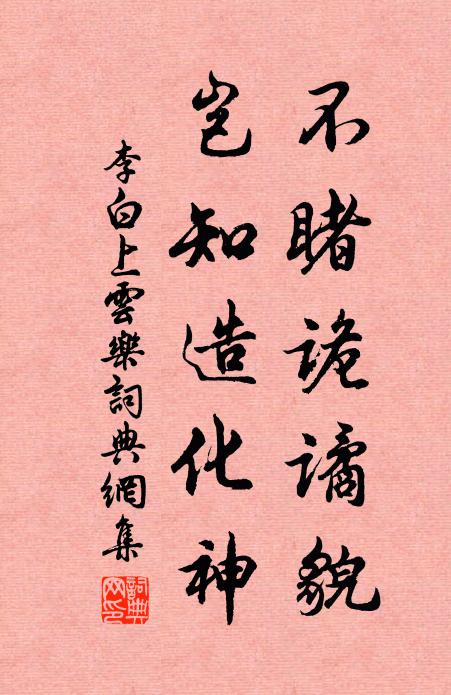 不睹詭譎貌
豈知造化神
李白上雲樂詞典網集
詞典網印